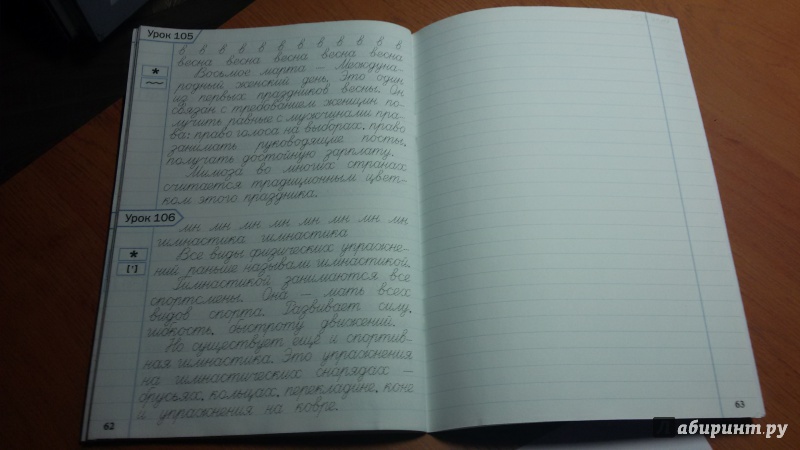 Урок 105
в в в в в в в в в в в в
весна весна весна весна весна
Восьмое марта – Междуна-
родный женский день. Это один
из первых праздников весны. Он
связан с требованием женщин по-
лучить равные с мужчинами пра-
ва: право голоса на выборах, право
занимать руководящие посты,
получать достойную зарплату.
Мимоза во многих странах
считается традиционным цвет-
ком этого праздника.
Урок 106
мн мн мн мн мн мн мн мн
гимнастика гимнастика
Все виды физических упражне-
ний раньше называли гимнастикой.
Гимнастикой занимаются все
спортсмены. Она – мать всех
видов спорта. Развивает силу,
гибкость, быстроту движений.
Но существует ещё и спортив-
ная гимнастика. Это упражнения
на гимнастических снарядах –
брусьях, кольцах, перекладине, коне
и упражнения на ковре.
62
63
Лабиринт.ру